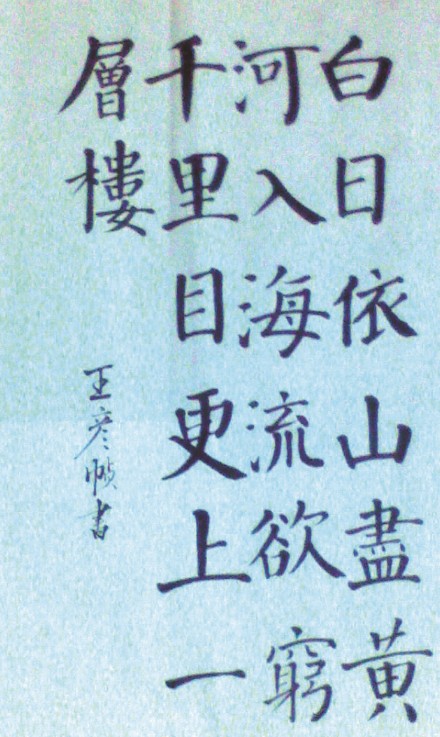 白日依山盡黄
河入海流欲窮
千里目更上一
層樓
王彦幀書